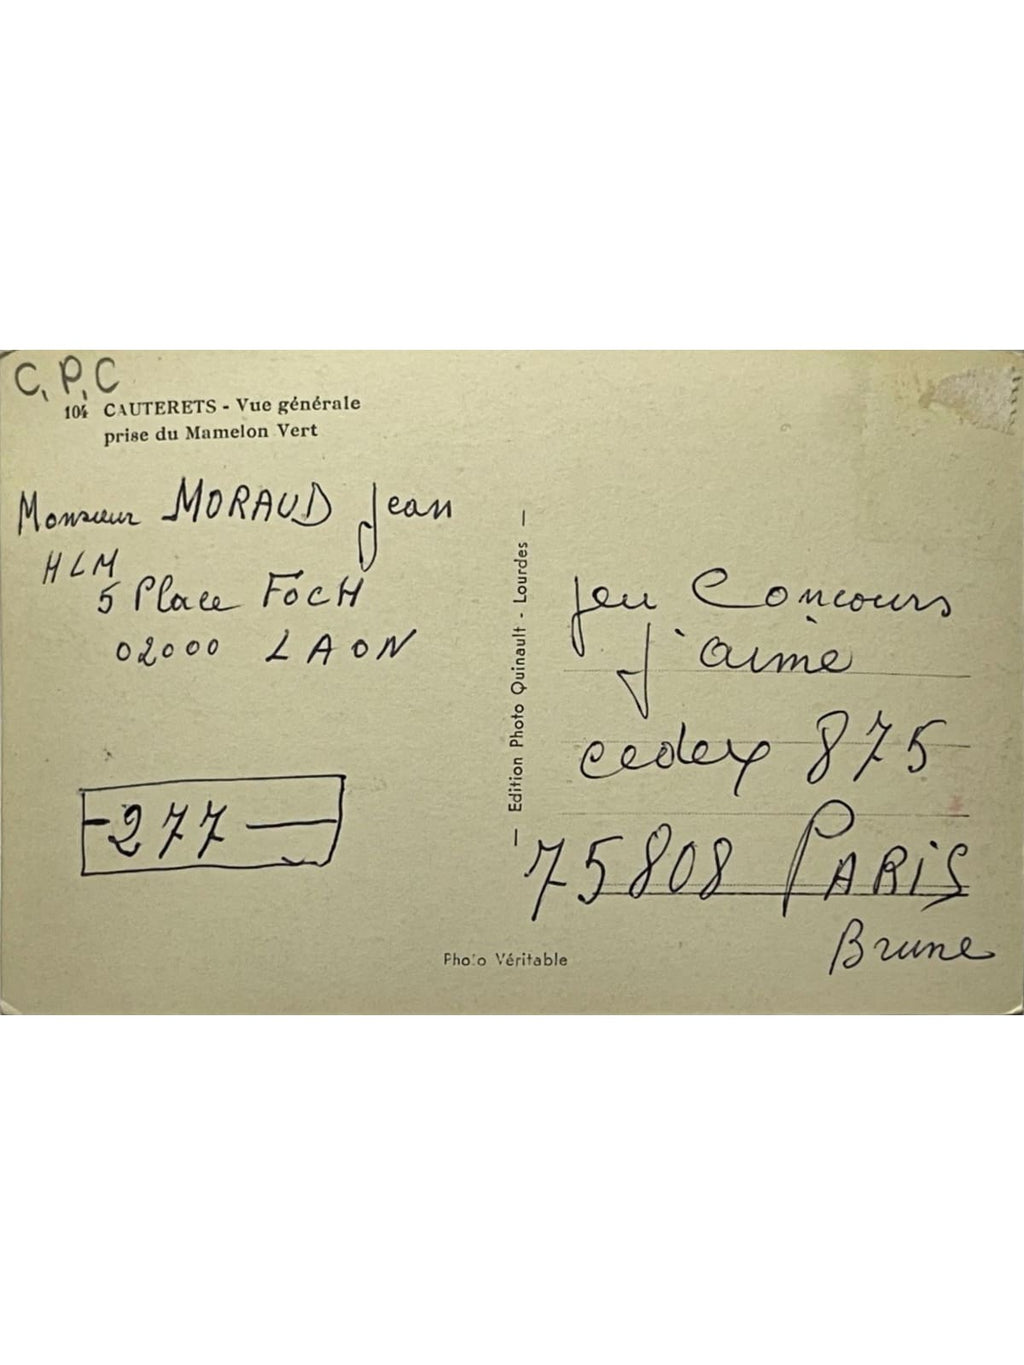 C, P, C
104 CAUTERETS - Vue générale
prise du Mamelon Vert
Monsieur MORAUD Jean
HLM
5 Place FOCH
02000 LAON
-277—
— Edition Photo Quinault - Lourdes —
Jeu Concours
J'aime
cedex 875
75808 PARIS
Brune
Photo Véritable